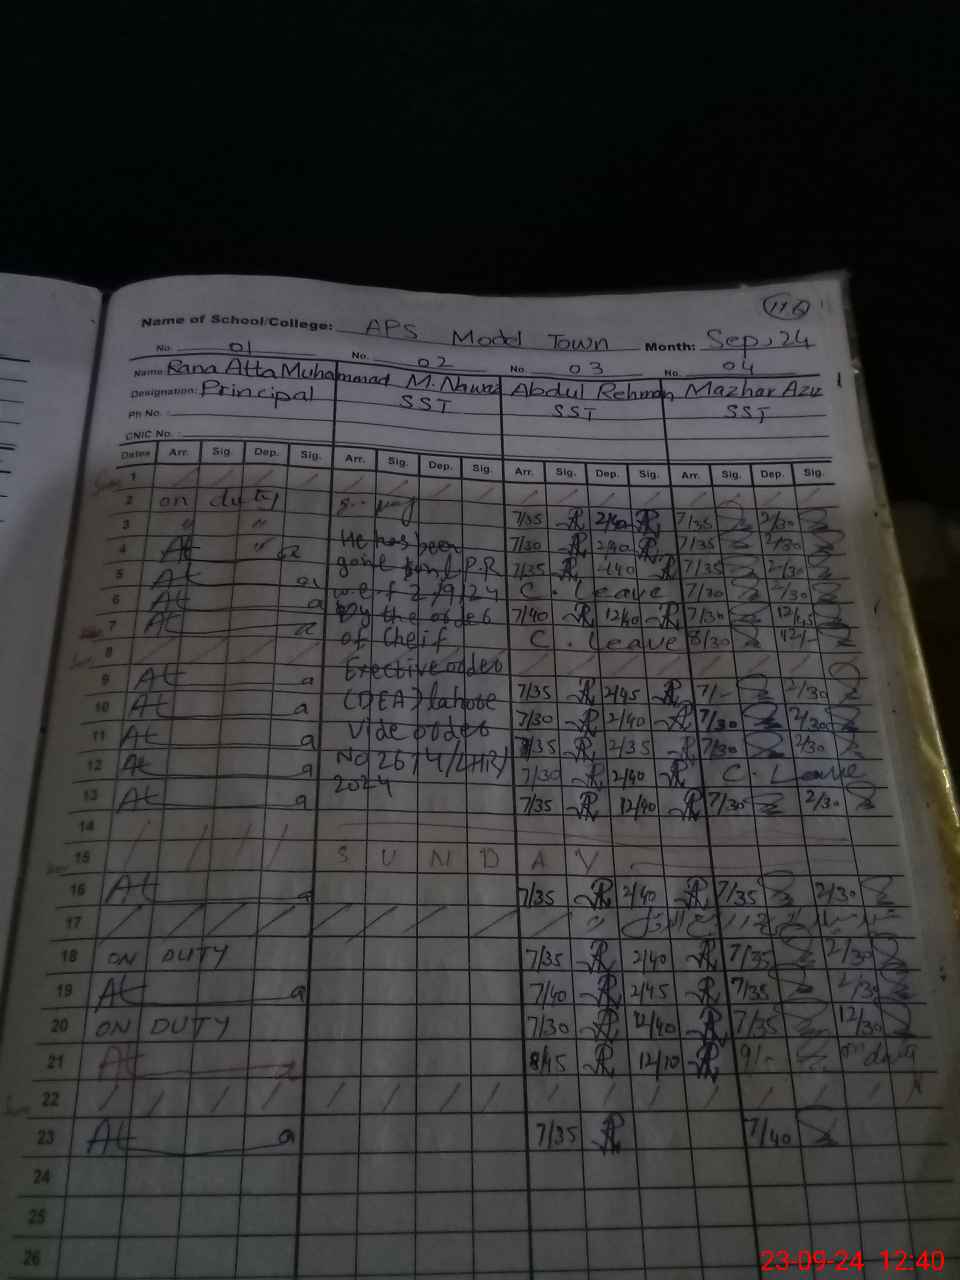 116
Name of School/College: APS Model Town Month: Sep, 24
No. 01 No. 02 No 03 No. 04
Name: Rana Atta Muhammad M. Nawaz Abdul Rehman Mazhar Aziz
Designation: Principal SST SST SST
Ph No.
CNIC No. :
Dates Arr. Sig. Dep. Sig. Arr. Sig. Dep. Sig. Arr. Sig. Dep. Sig. Arr. Sig. Dep. Sig.
1
2 on duty 7/35 2/40 7/35 2/30
3 " " He has been 7/30 2/40 7/35 2/30
4 At " gone P.R 7/35 2/40 7/35 2/30
5 At w.e.f 2/9/24 C. Leave 7/30 2/30
6 At by the order 7/40 12/40 7/30 12/45
7 At of Cheif C. Leave 8/30 12/-
8 Exective order
9 At (DEA) lahore 7/35 2/45 7/- 2/30
10 At vide order 7/30 2/40 7/30 2/30
11 At No 2674/LHR/ 7/35 2/35 7/30 2/30
12 At 2024 7/30 2/40 C. Leave
13 At 7/35 12/40 7/30 2/30
14
15 S U N D A Y
16 At 7/35 2/40 7/35 2/30
17
18 ON DUTY 7/35 2/40 7/35 2/30
19 At 7/40 2/45 7/35 2/30
20 ON DUTY 7/30 12/40 7/35 12/30
21 At 8/45 12/10 9/- on duty
22
23 At 7/35 7/40
24
25
26
23-09-24 12:40